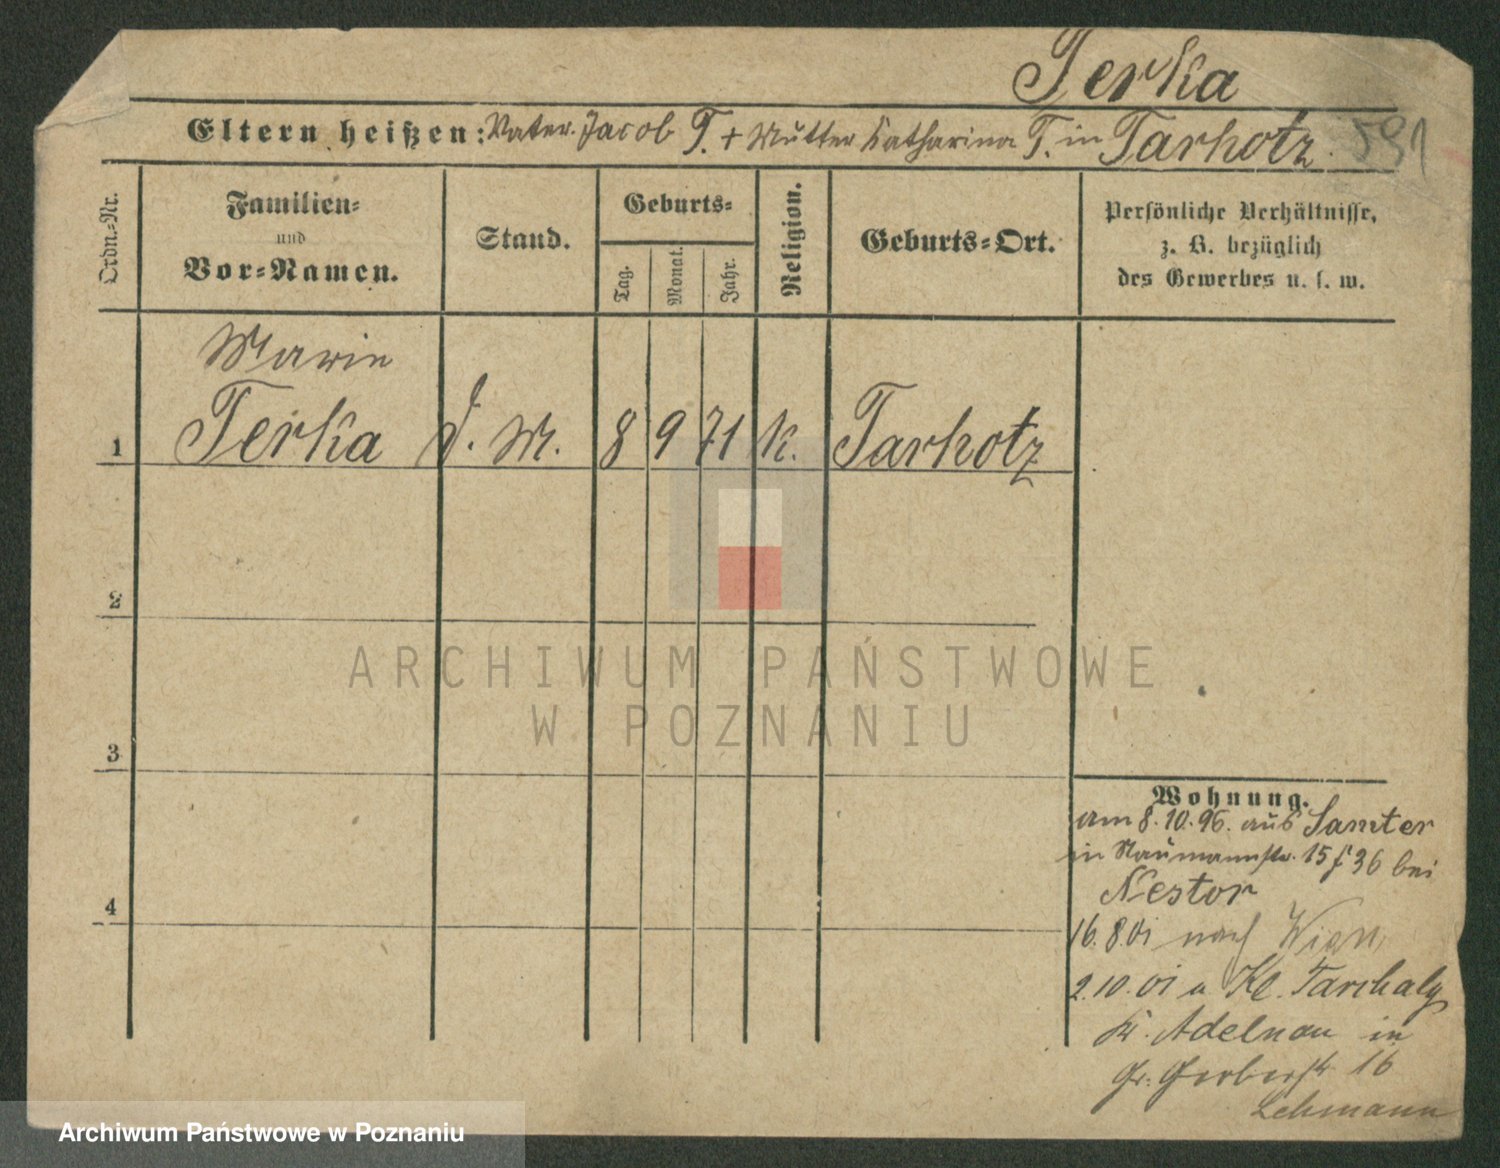 Terka
Eltern heißen: Vater Jacob T. + Mutter Katharina T. in Tarhotz. 591
Ordn.-Nr.
Familien-
und
Vor-Namen.
Stand.
Geburts-
Tag.
Monat.
Jahr.
Religion.
Geburts-Ort.
Persönliche Verhältnisse,
z. B. bezüglich
des Gewerbes u. s. w.
Marie
1 Terka D. M. 8 9 71 k. Tarhotz
2
3
4
Wohnung.
am 8.10.96. aus Samter
in Naumannstr. 15 f 36 bei
Nestor
16.8.01 nach Wien
2.10.01 a Kl. Tarchaly
Kr. Adelnau in
Gr. Gerberstr 16
Lehmann
ARCHIWUM PAŃSTWOWE
W POZNANIU
Archiwum Państwowe w Poznaniu